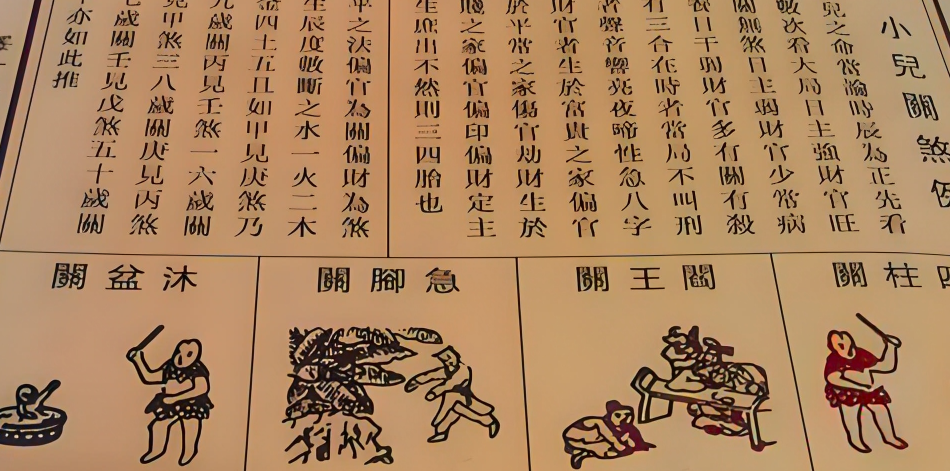 小兒關煞例
兒之命當論時辰為正先看
次看大局日主強財官旺
關煞日主弱財官少常病
日干弱財官多有關有殺
有三合在時者當局不叫刑
聲音響亮夜啼性急八字
財官者生於富貴之家偏官
於平常之家傷官劫財生於
賤之家偏官偏印偏財定主
生庶出不然則三四胎也
之法偏官為關偏財為煞
生辰度數斷之水一火二木
金四土五且如甲見庚煞乃
九歲關丙見壬煞一六歲關
見甲煞三八歲關庚見丙煞
七歲關壬見戊煞五十歲關
亦如此推
四柱關
閻王關
急腳關
沐盆關